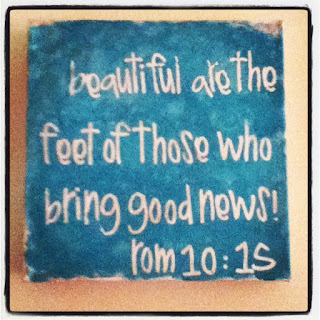 beautiful are the
feet of those who
bring good news!
rom 10:15